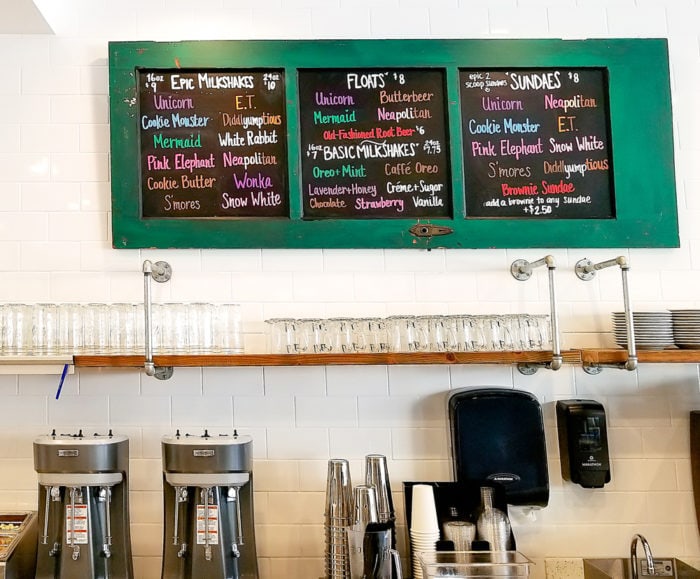 16oz $9 EPIC MILKSHAKES 24oz $10
Unicorn E.T.
Cookie Monster Diddlyumptious
Mermaid White Rabbit
Pink Elephant Neapolitan
Cookie Butter Wonka
S'mores Snow White
FLOATS $8
Unicorn Butterbeer
Mermaid Neapolitan
Old-Fashioned Root Beer $6
16oz $7 "BASIC MILKSHAKES" 24oz $7.75
Oreo+Mint Caffé Oreo
Lavender+Honey Créme+Sugar
Chocolate Strawberry Vanilla
epic 2 scoop sundaes SUNDAES $8
Unicorn Neapolitan
Cookie Monster E.T.
Pink Elephant Snow White
S'mores Diddlyumptious
Brownie Sundae
add a brownie to any sundae
+$2.50